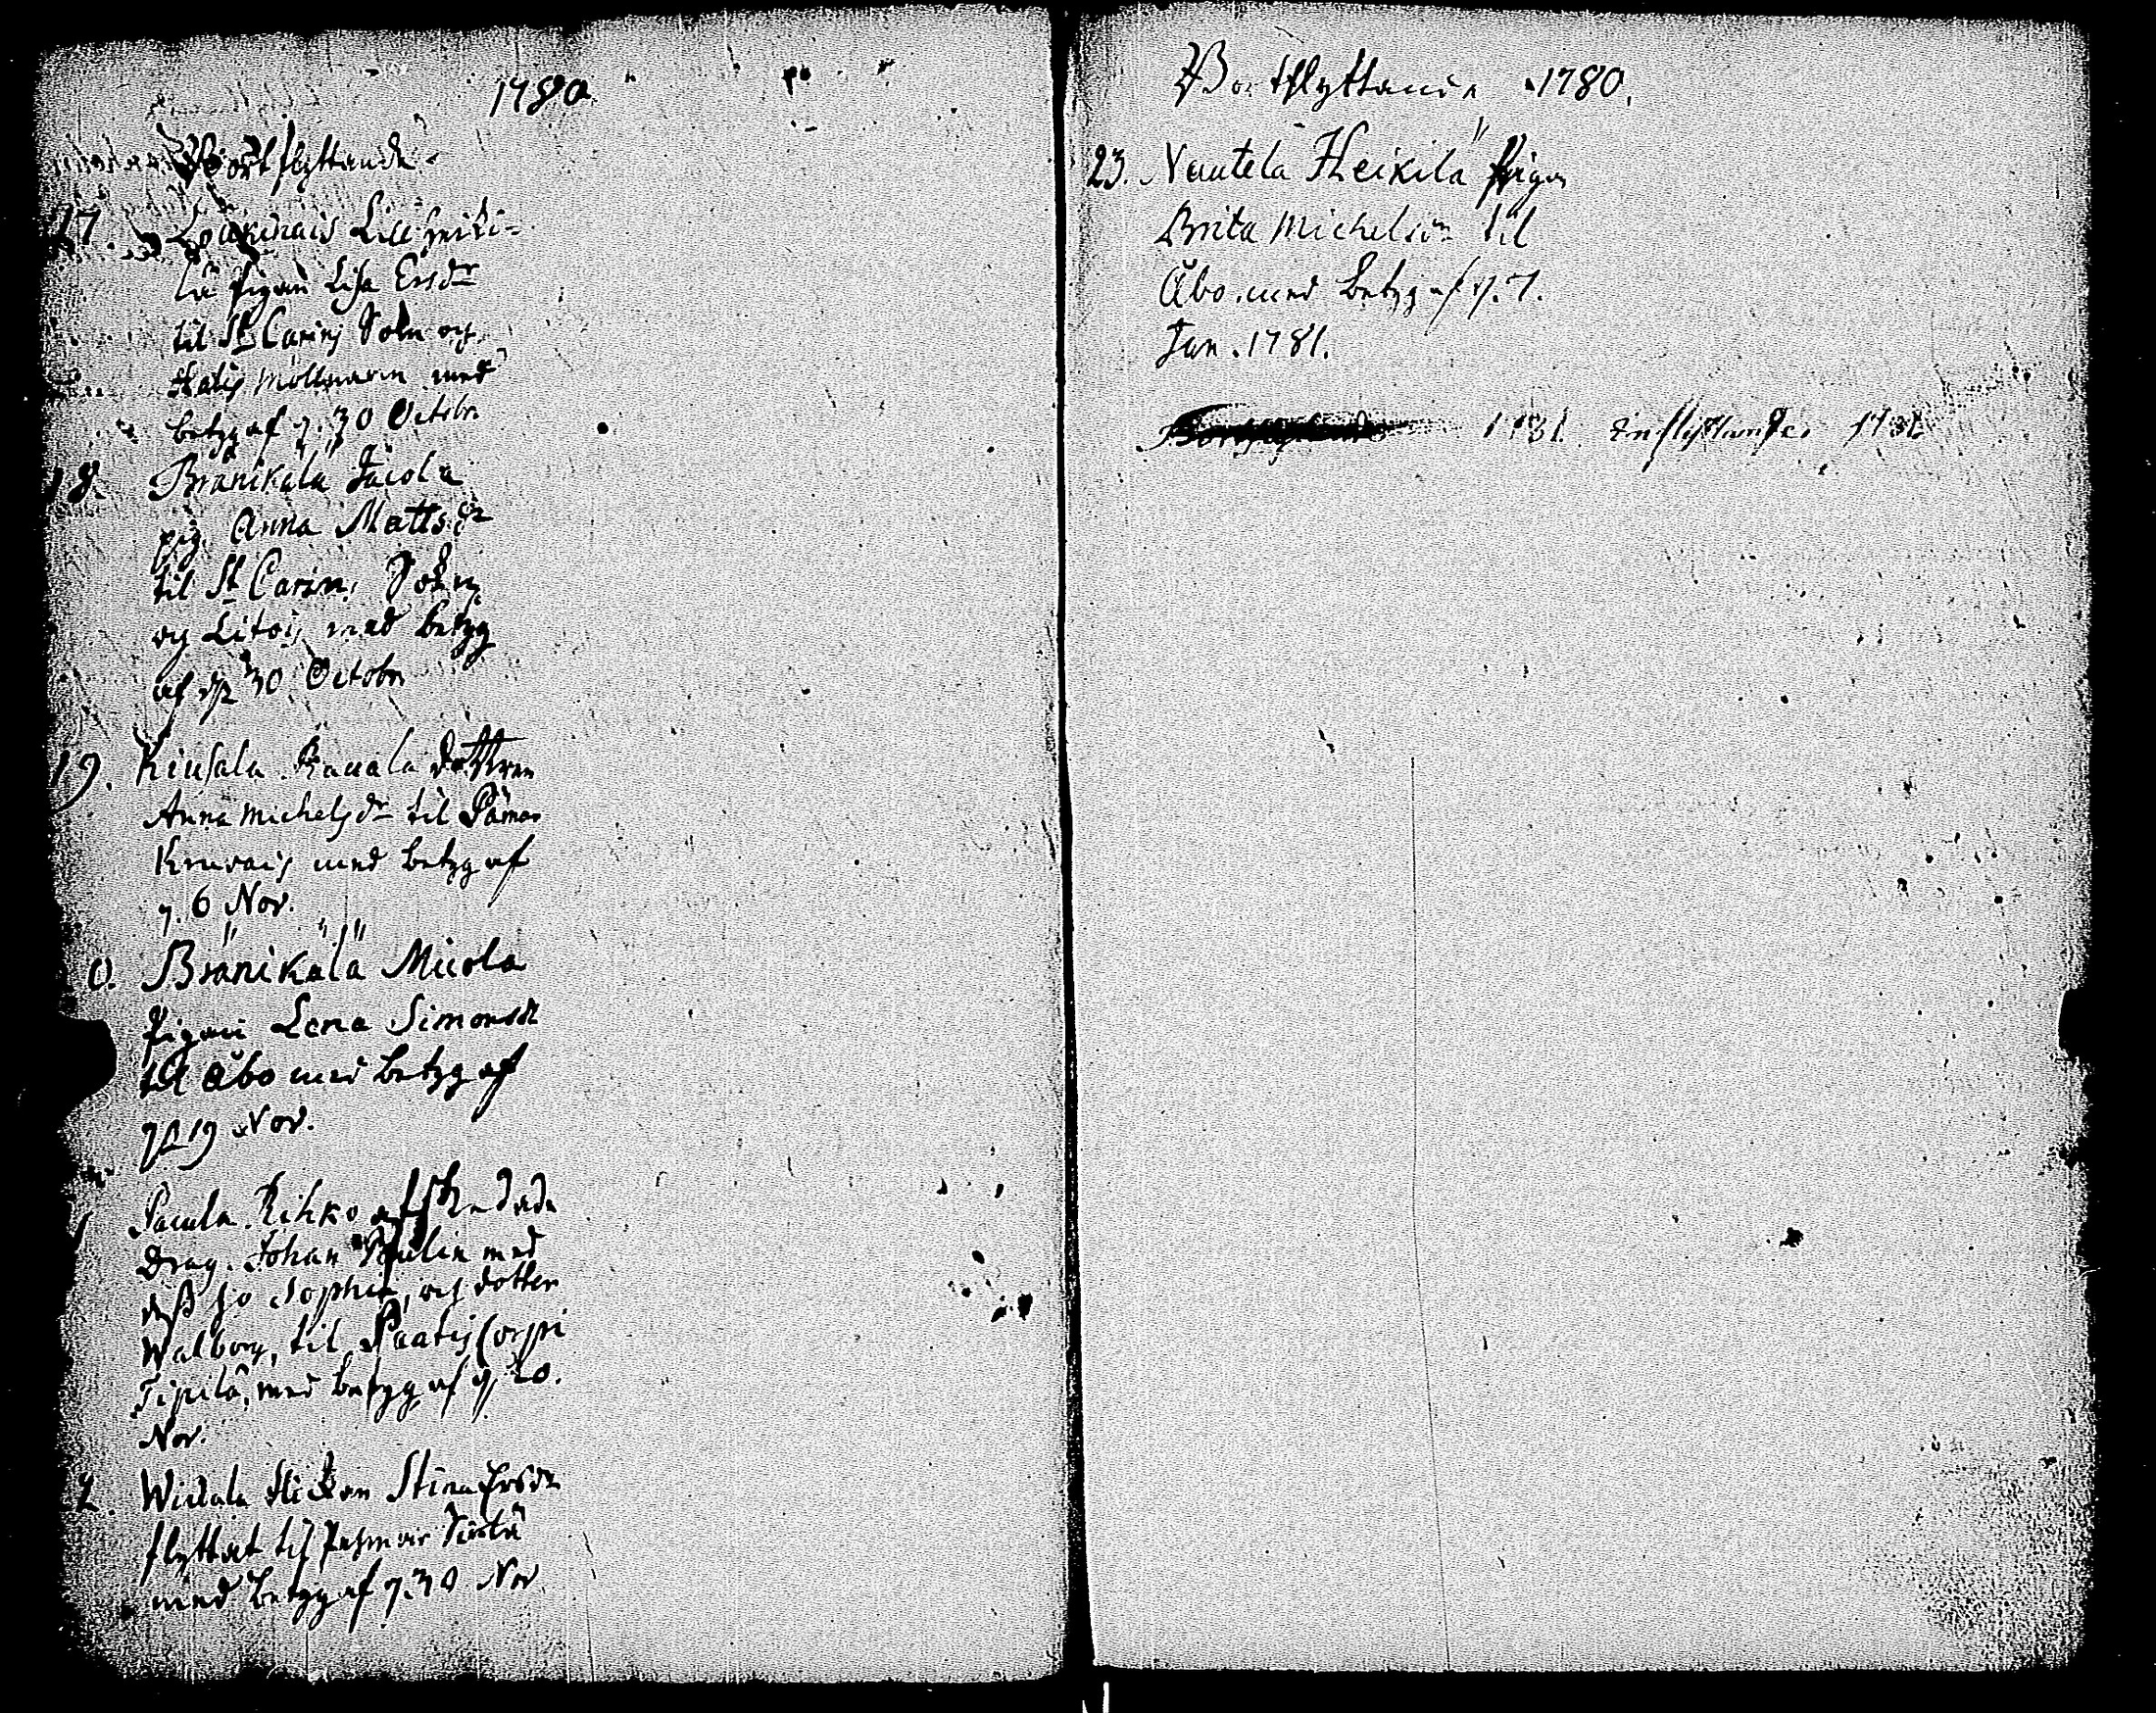 1780.
Bortflyttande
17. Loukinais Lill heiki-
lä pigan Lisa Ersdr
til St Carins Sokn och
Halis Möllnaren med
betyg af d. 30 Octobr
18. Bränikälä Jacola
pig. Anna Mattsdr
til St Carins Sokn
och Litois med betyg
af d. 30 Octobr
19. Kiusala Kauala dottren
Anna Michelsdr til Pämar
med betyg af
d. 6 Nov.
0. Bränikälä Micola
pigan Lena Simonsdr
til Åbo med betyg af
d. 19 Nov.
Pacula Rihko afskedade
Drag. Johan med
dess h:o Sophia, och dotter
Walborg, til Paatis Corpi
Tipilä, med betyg af d. 20.
Nov.
2. Widala Flickan Stina Ersdr
flyttat til Pejmar
med betyg af d. 30 Nov
Bortflyttande 1780.
23. Nautela Heikilä pigan
Brita Michelsdr til
Åbo med betyg af d. 7.
Jan. 1781.
1781. Inflyttande 1781